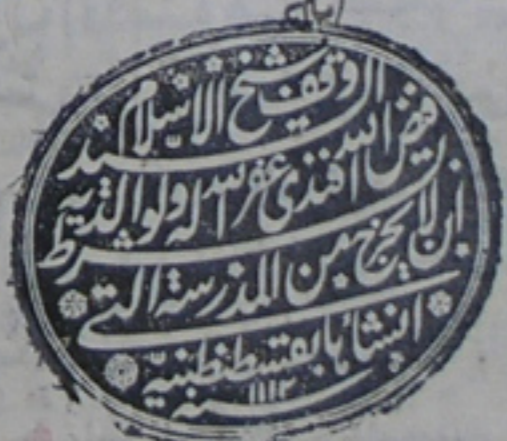 وقف شيخ الاسلام السيد
فيض الله افندى غفر الله له ولوالديه
بشرط ان لا يخرج من المدرسة التى
انشأها بقسطنطنيية
سنه ١١١٢